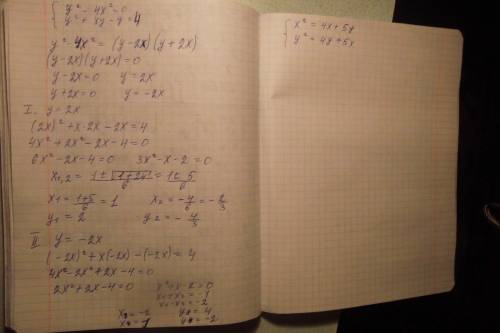 { y² - 4x² = 0
y² + xy - y = 4
y² - 4x² = (y-2x)(y+2x)
(y-2x)(y+2x) = 0
y-2x=0 y=2x
y+2x=0 y=-2x
I. y=2x
(2x)² + x·2x - 2x = 4
4x² + 2x² - 2x - 4 = 0
6x² - 2x - 4 = 0 3x² - x - 2 = 0
x₁,₂ = (1±√(1+24))/6 = (1±5)/6
x₁ = (1+5)/6 = 1 x₂ = -4/6 = -2/3
y₁ = 2 y₂ = -4/3
II y = -2x
(-2x)² + x(-2x) - (-2x) = 4
4x² - 2x² + 2x - 4 = 0
2x² + 2x - 4 = 0 x² + x - 2 = 0
x₁+x₂ = -1
x₁·x₂ = -2
x₃ = -2 y₃ = 4
x₄ = 1 y₄ = -2
{ x² = 4x + 5y
y² = 4y + 5x